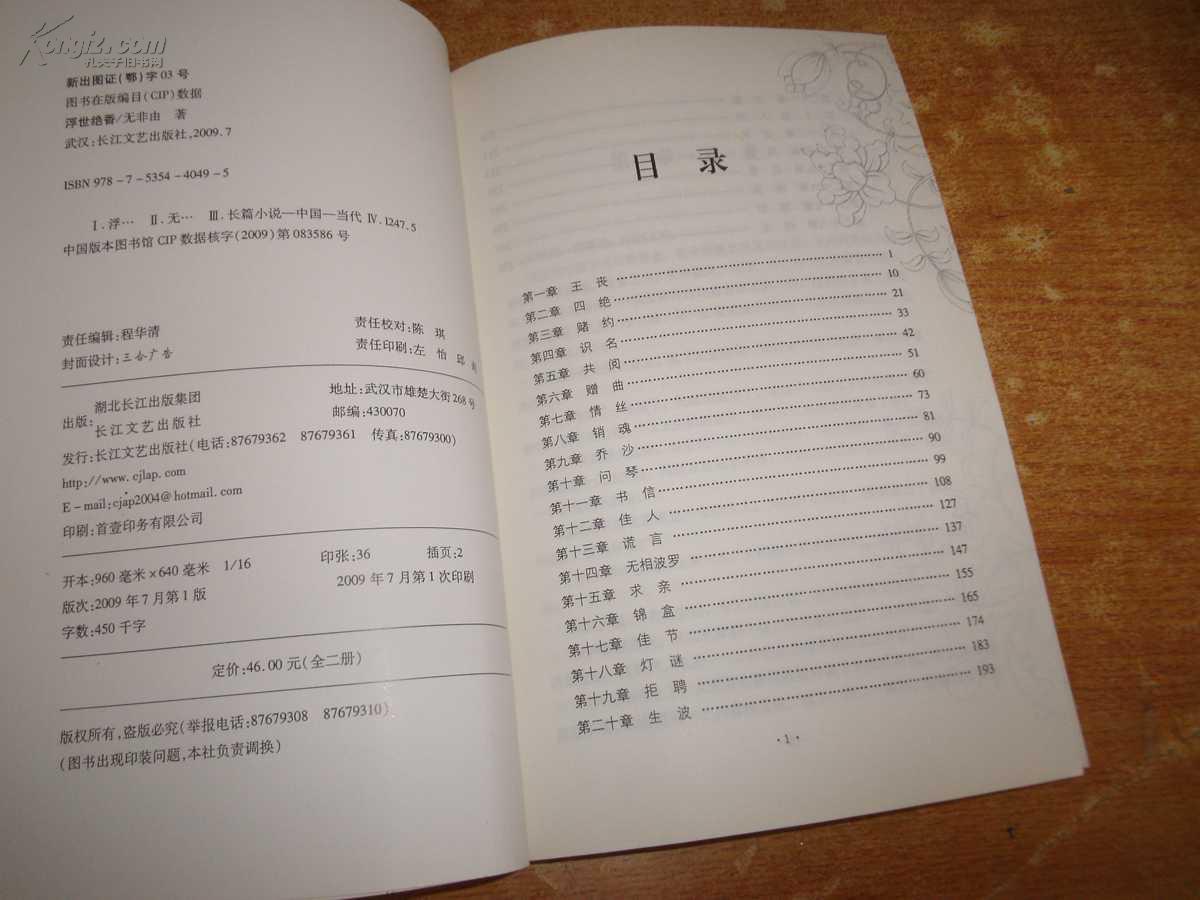 Kongfz.com
孔夫子旧书网
新出图证(鄂)字03号
图书在版编目(CIP)数据
浮世绝香/无非由 著
武汉:长江文艺出版社,2009.7
ISBN 978-7-5354-4049-5
Ⅰ.浮… Ⅱ.无… Ⅲ.长篇小说—中国—当代 Ⅳ.I247.5
中国版本图书馆CIP数据核字(2009)第083586号
责任编辑:程华清
责任校对:陈 琪
封面设计:三合广告
责任印刷:左 怡 邱
出版:
湖北长江出版集团
长江文艺出版社
地址:武汉市雄楚大街268号
邮编:430070
发行:长江文艺出版社(电话:87679362 87679361 传真:87679300)
http://www.cjlap.com
E-mail:cjap2004@hotmail.com
印刷:首壹印务有限公司
开本:960毫米×640毫米 1/16
印张:36
插页:2
版次:2009年7月第1版
2009年7月第1次印刷
字数:450千字
定价:46.00元(全二册)
版权所有,盗版必究(举报电话:87679308 87679310)
(图书出现印装问题,本社负责调换)
目 录
第一章 王 丧 …… 1
第二章 四 绝 …… 10
第三章 赌 约 …… 21
第四章 识 名 …… 33
第五章 共 阅 …… 42
第六章 赠 曲 …… 51
第七章 情 丝 …… 60
第八章 销 魂 …… 73
第九章 乔 沙 …… 81
第十章 问 琴 …… 90
第十一章 书 信 …… 99
第十二章 佳 人 …… 108
第十三章 谎 言 …… 127
第十四章 无相波罗 …… 137
第十五章 求 亲 …… 147
第十六章 锦 盒 …… 155
第十七章 佳 节 …… 165
第十八章 灯 谜 …… 174
第十九章 拒 聘 …… 183
第二十章 生 波 …… 193
·1·